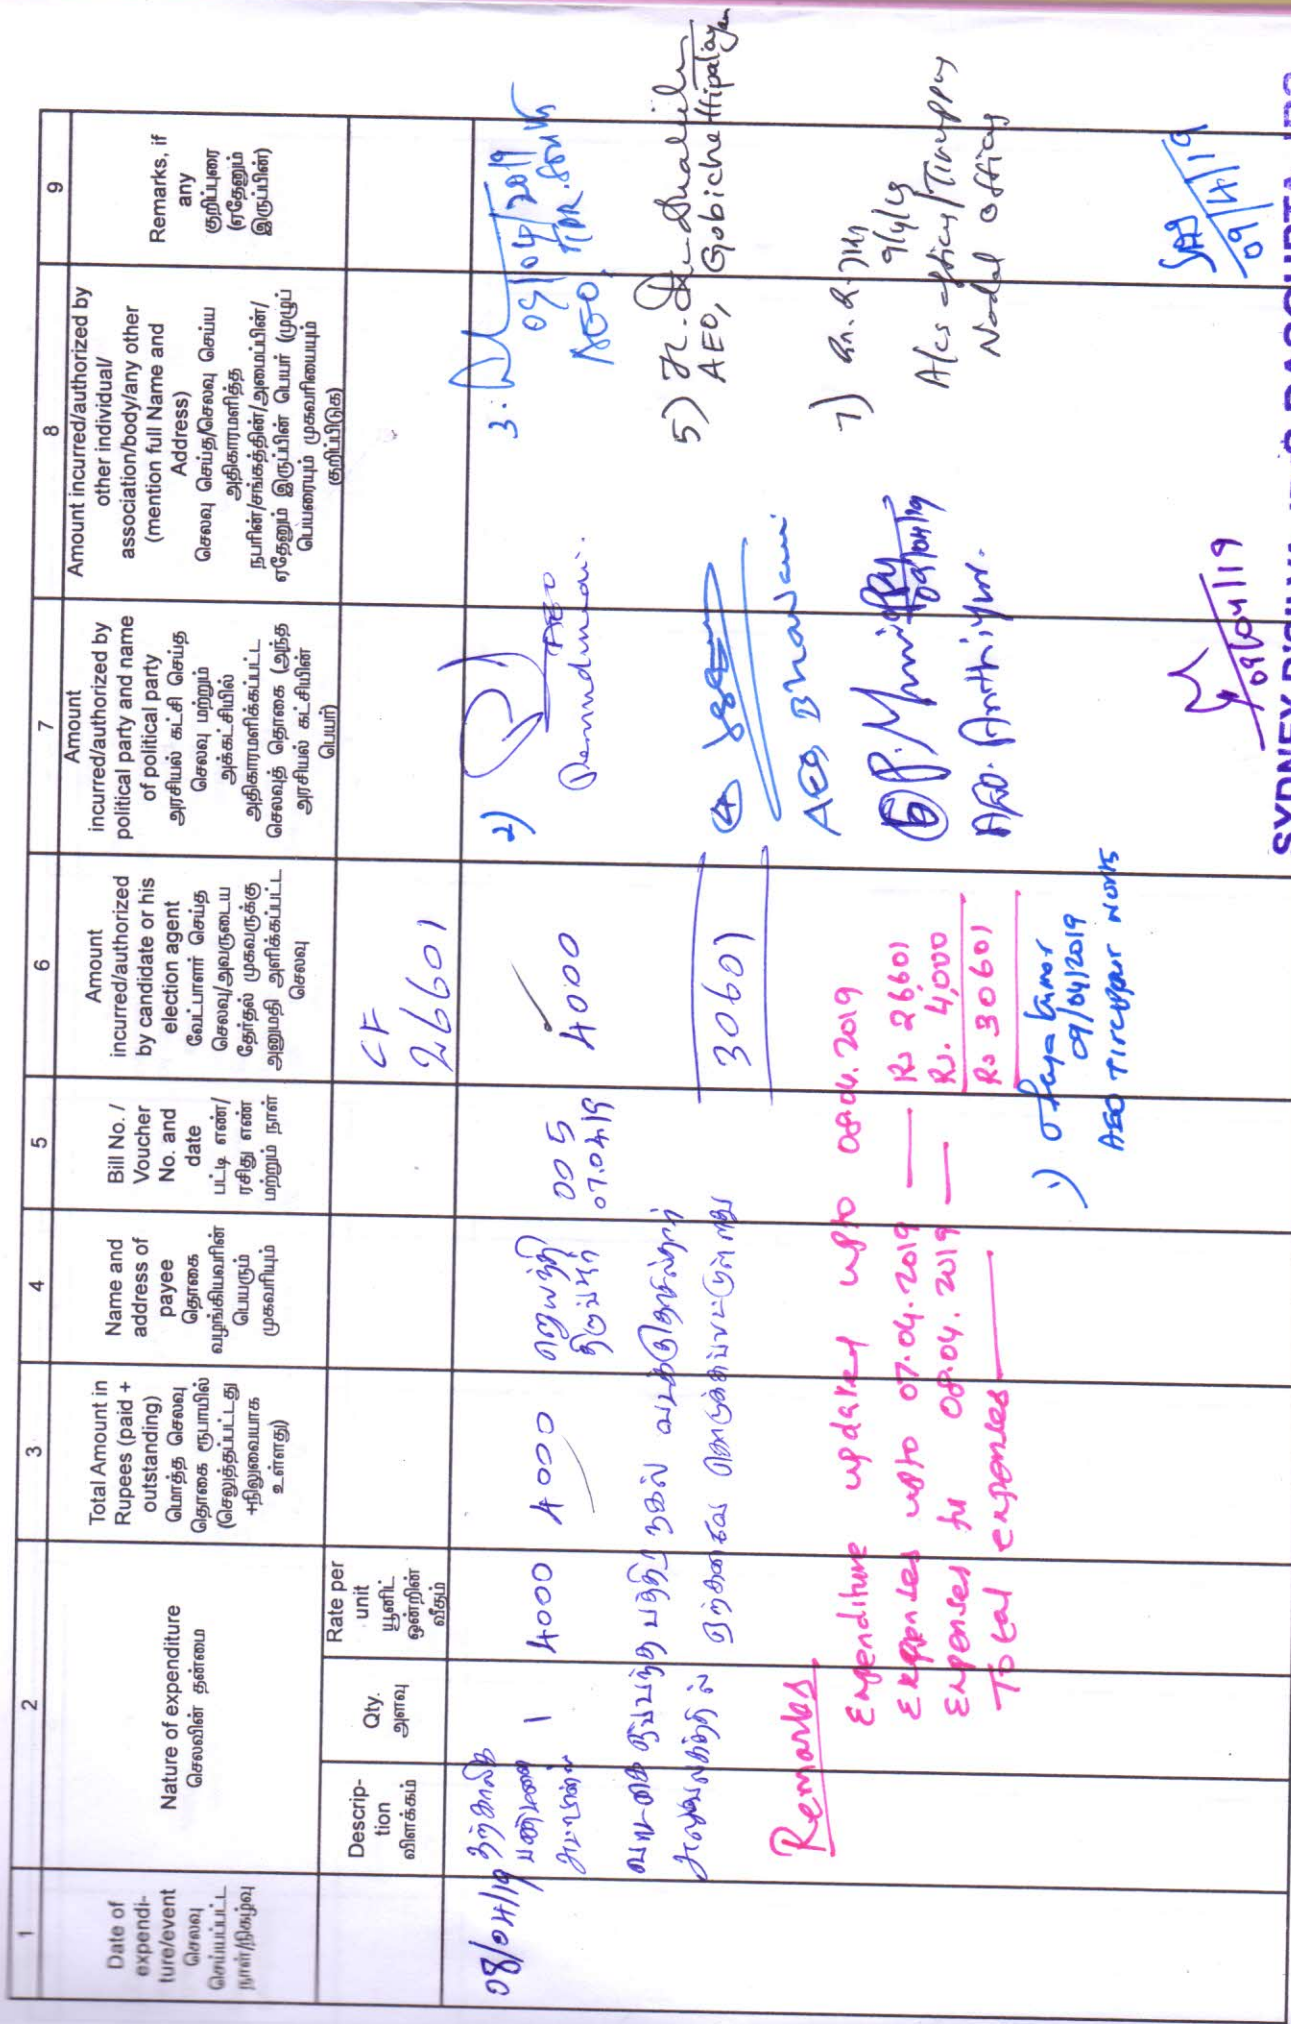 1
2
3
4
5
6
7
8
9
Date of
expendi-
ture/event
செலவு
செய்யப்பட்ட
நாள்/நிகழ்வு
Nature of expenditure
செலவின் தன்மை
Total Amount in
Rupees (paid +
outstanding)
மொத்த செலவு
தொகை ரூபாயில்
(செலுத்தப்பட்டது
+நிலுவையாக
உள்ளது)
Name and
address of
payee
தொகை
வழங்கியவரின்
பெயரும்
முகவரியும்
Bill No. /
Voucher
No. and
date
பட்டி எண்/
ரசிது எண்
மற்றும் நாள்
Amount
incurred/authorized
by candidate or his
election agent
வேட்பாளர் செய்த
செலவு/அவருடைய
தேர்தல் முகவருக்கு
அனுமதி அளிக்கப்பட்ட
செலவு
Amount
incurred/authorized by
political party and name
of political party
அரசியல் கட்சி செய்த
செலவு மற்றும்
அக்கட்சியில்
அதிகாரமளிக்கப்பட்ட
செலவுத் தொகை (அந்த
அரசியல் கட்சியின்
பெயர்)
Amount incurred/authorized by
other individual/
association/body/any other
(mention full Name and
Address)
செலவு செய்த/செலவு செய்ய
அதிகாரமளித்த
நபரின்/சங்கத்தின்/அமைப்பின்/
ஏதேனும் இருப்பின் பெயர் (முழுப்
பெயரையும் முகவரியையும்
குறிப்பிடுக)
Remarks, if
any
குறிப்புரை
(ஏதேனும்
இருப்பின்)
Descrip-
tion
விளக்கம்
Qty.
அளவு
Rate per
unit
யூனிட்
ஒன்றின்
வீதம்
CF
26601
08/04/19 தற்காலிக
பணிமனை 1 4000 4000
திருப்பூர்
005
07.04.19
4000
30601
வாடகை ஒப்பந்த பத்திர நகல் வடக்கு
அலுவலகத்தில் ஏற்கனவே
Remarks
Expenditure updated upto 08.04.2019
Expenses upto 07.04.2019 — Rs 26601
Expenses for 08.04.2019 — Rs. 4,000
Total expenses — Rs 30601
1)
09/04/2019
AEO Tiruppur North
2)
AEO
Perundurai.
3.
09/04/2019
AEO, TPR. South
4
AEO Bhavani
5)
AEO, Gobichettipalayam
6
09/04/19
AEO. Anthiyur.
7)
9/4/19
A/cs officer/Tiruppur
Nodal officer
09/04/19
09/4/19